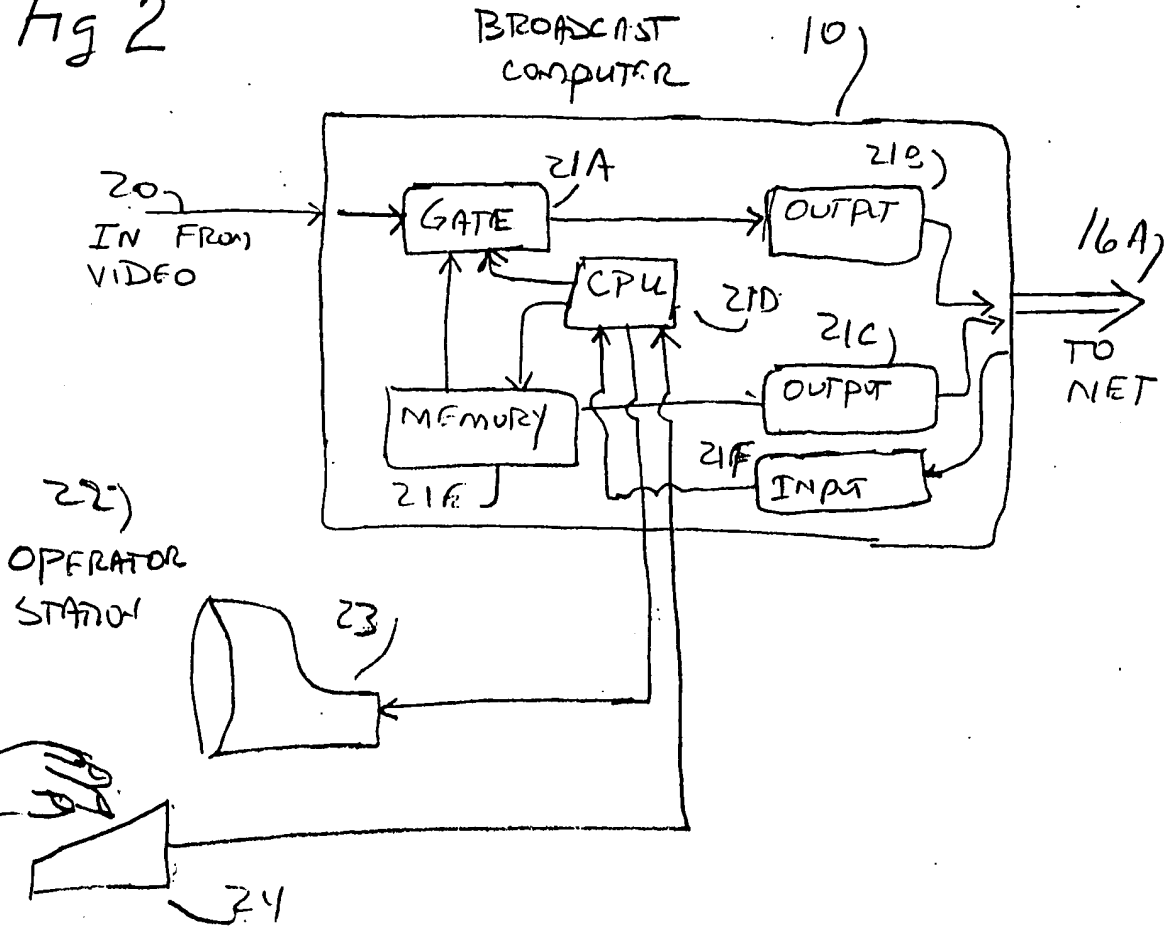 Fig 2
BROADCAST
COMPUTER
10
20
IN FROM
VIDEO
21A
GATE
21B
OUTPUT
16A
TO
NET
CPU
21D
21C
OUTPUT
MEMORY
21E
21F
INPUT
22
OPERATOR
STATION
23
24